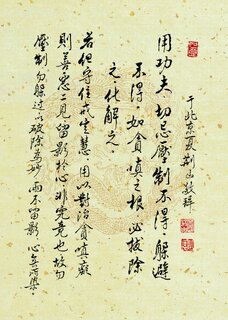 于北京夏荆山敬拜
用功夫、切忌壓制不得、躲避
不得、如貪嗔之根、必拔除
之、化解之
若但守住戒生慧、用以對治貪嗔癡
則善惡二見留影於心非究竟也故勿
壓制、勿躲過、以破除為妙、而不留影、心無所染、